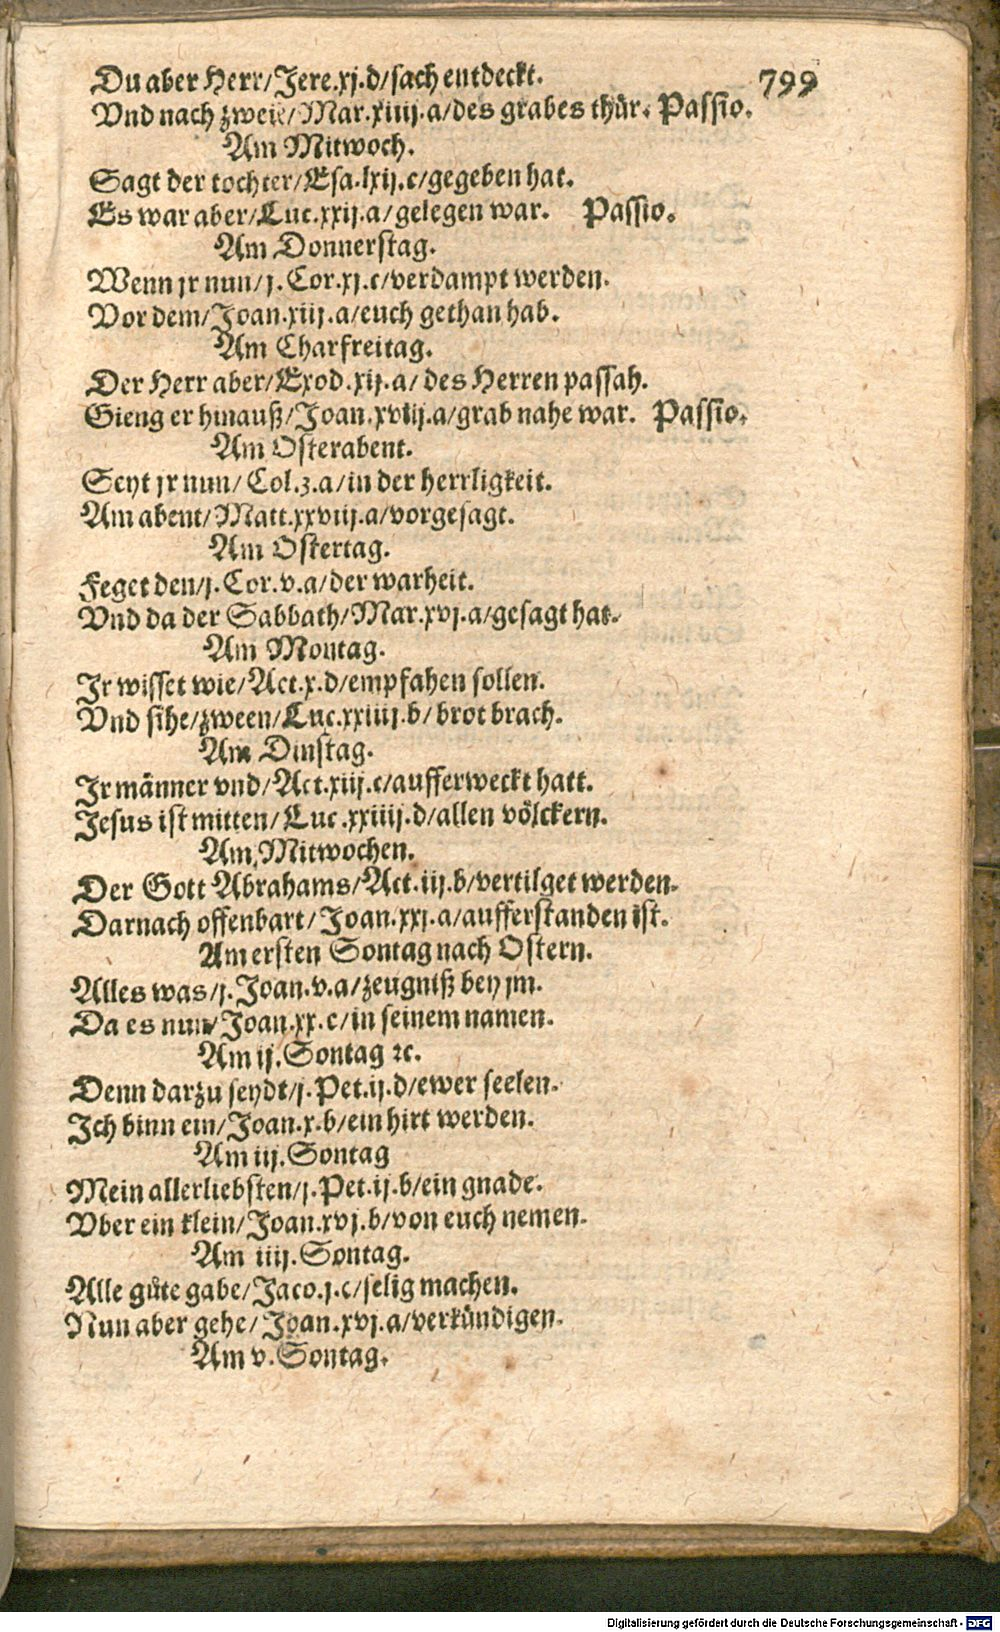 799
Du aber Herr/Jere.xj.d/sach entdeckt.
Vnd nach zweie/Mar.xiiij.a/des grabes thür. Passio.
Am Mitwoch.
Sagt der tochter/Esa.lxij.c/gegeben hat.
Es war aber/Luc.xxij.a/gelegen war. Passio.
Am Donnerstag.
Wenn jr nun/j. Cor.xj.c/verdampt werden.
Vor dem/Joan.xiij.a/euch gethan hab.
Am Charfreitag.
Der Herr aber/Exod.xij.a/des Herren passah.
Gieng er hinauß/Joan.xviij.a/grab nahe war. Passio.
Am Osterabent.
Seyt jr nun/Col.3.a/in der herrligkeit.
Am abent/Matt.xxviij.a/vorgesagt.
Am Ostertag.
Feget den/j.Cor.v.a/der warheit.
Vnd da der Sabbath/Mar.xvj.a/gesagt hat.
Am Montag.
Jr wisset wie/Act.x.d/empfahen sollen.
Vnd sihe/zween/Luc.xxiiij.b/brot brach.
Am Dinstag.
Jr männer vnd/Act.xiij.c/aufferweckt hatt.
Jesus ist mitten/Luc.xxiiij.d/allen völckern.
Am Mitwochen.
Der Gott Abrahams/Act.iij.b/vertilget werden.
Darnach offenbart/Joan.xxj.a/aufferstanden ist.
Am ersten Sontag nach Ostern.
Alles was/j.Joan.v.a/zeugniß bey jm.
Da es nun/Joan.xx.c/in seinem namen.
Am ij.Sontag ꝛc.
Denn darzu seydt/j.Pet.ij.d/ewer seelen.
Ich binn ein/Joan.x.b/ein hirt werden.
Am iij.Sontag
Mein allerliebsten/j.Pet.ij.b/ein gnade.
Vber ein klein/Joan.xvj.b/von euch nemen.
Am iiij.Sontag.
Alle gůte gabe/Jaco.j.c/selig machen.
Nun aber gehe/Joan.xvj.a/verkündigen.
Am v.Sontag.
Digitalisierung gefördert durch die Deutsche Forschungsgemeinschaft - DFG